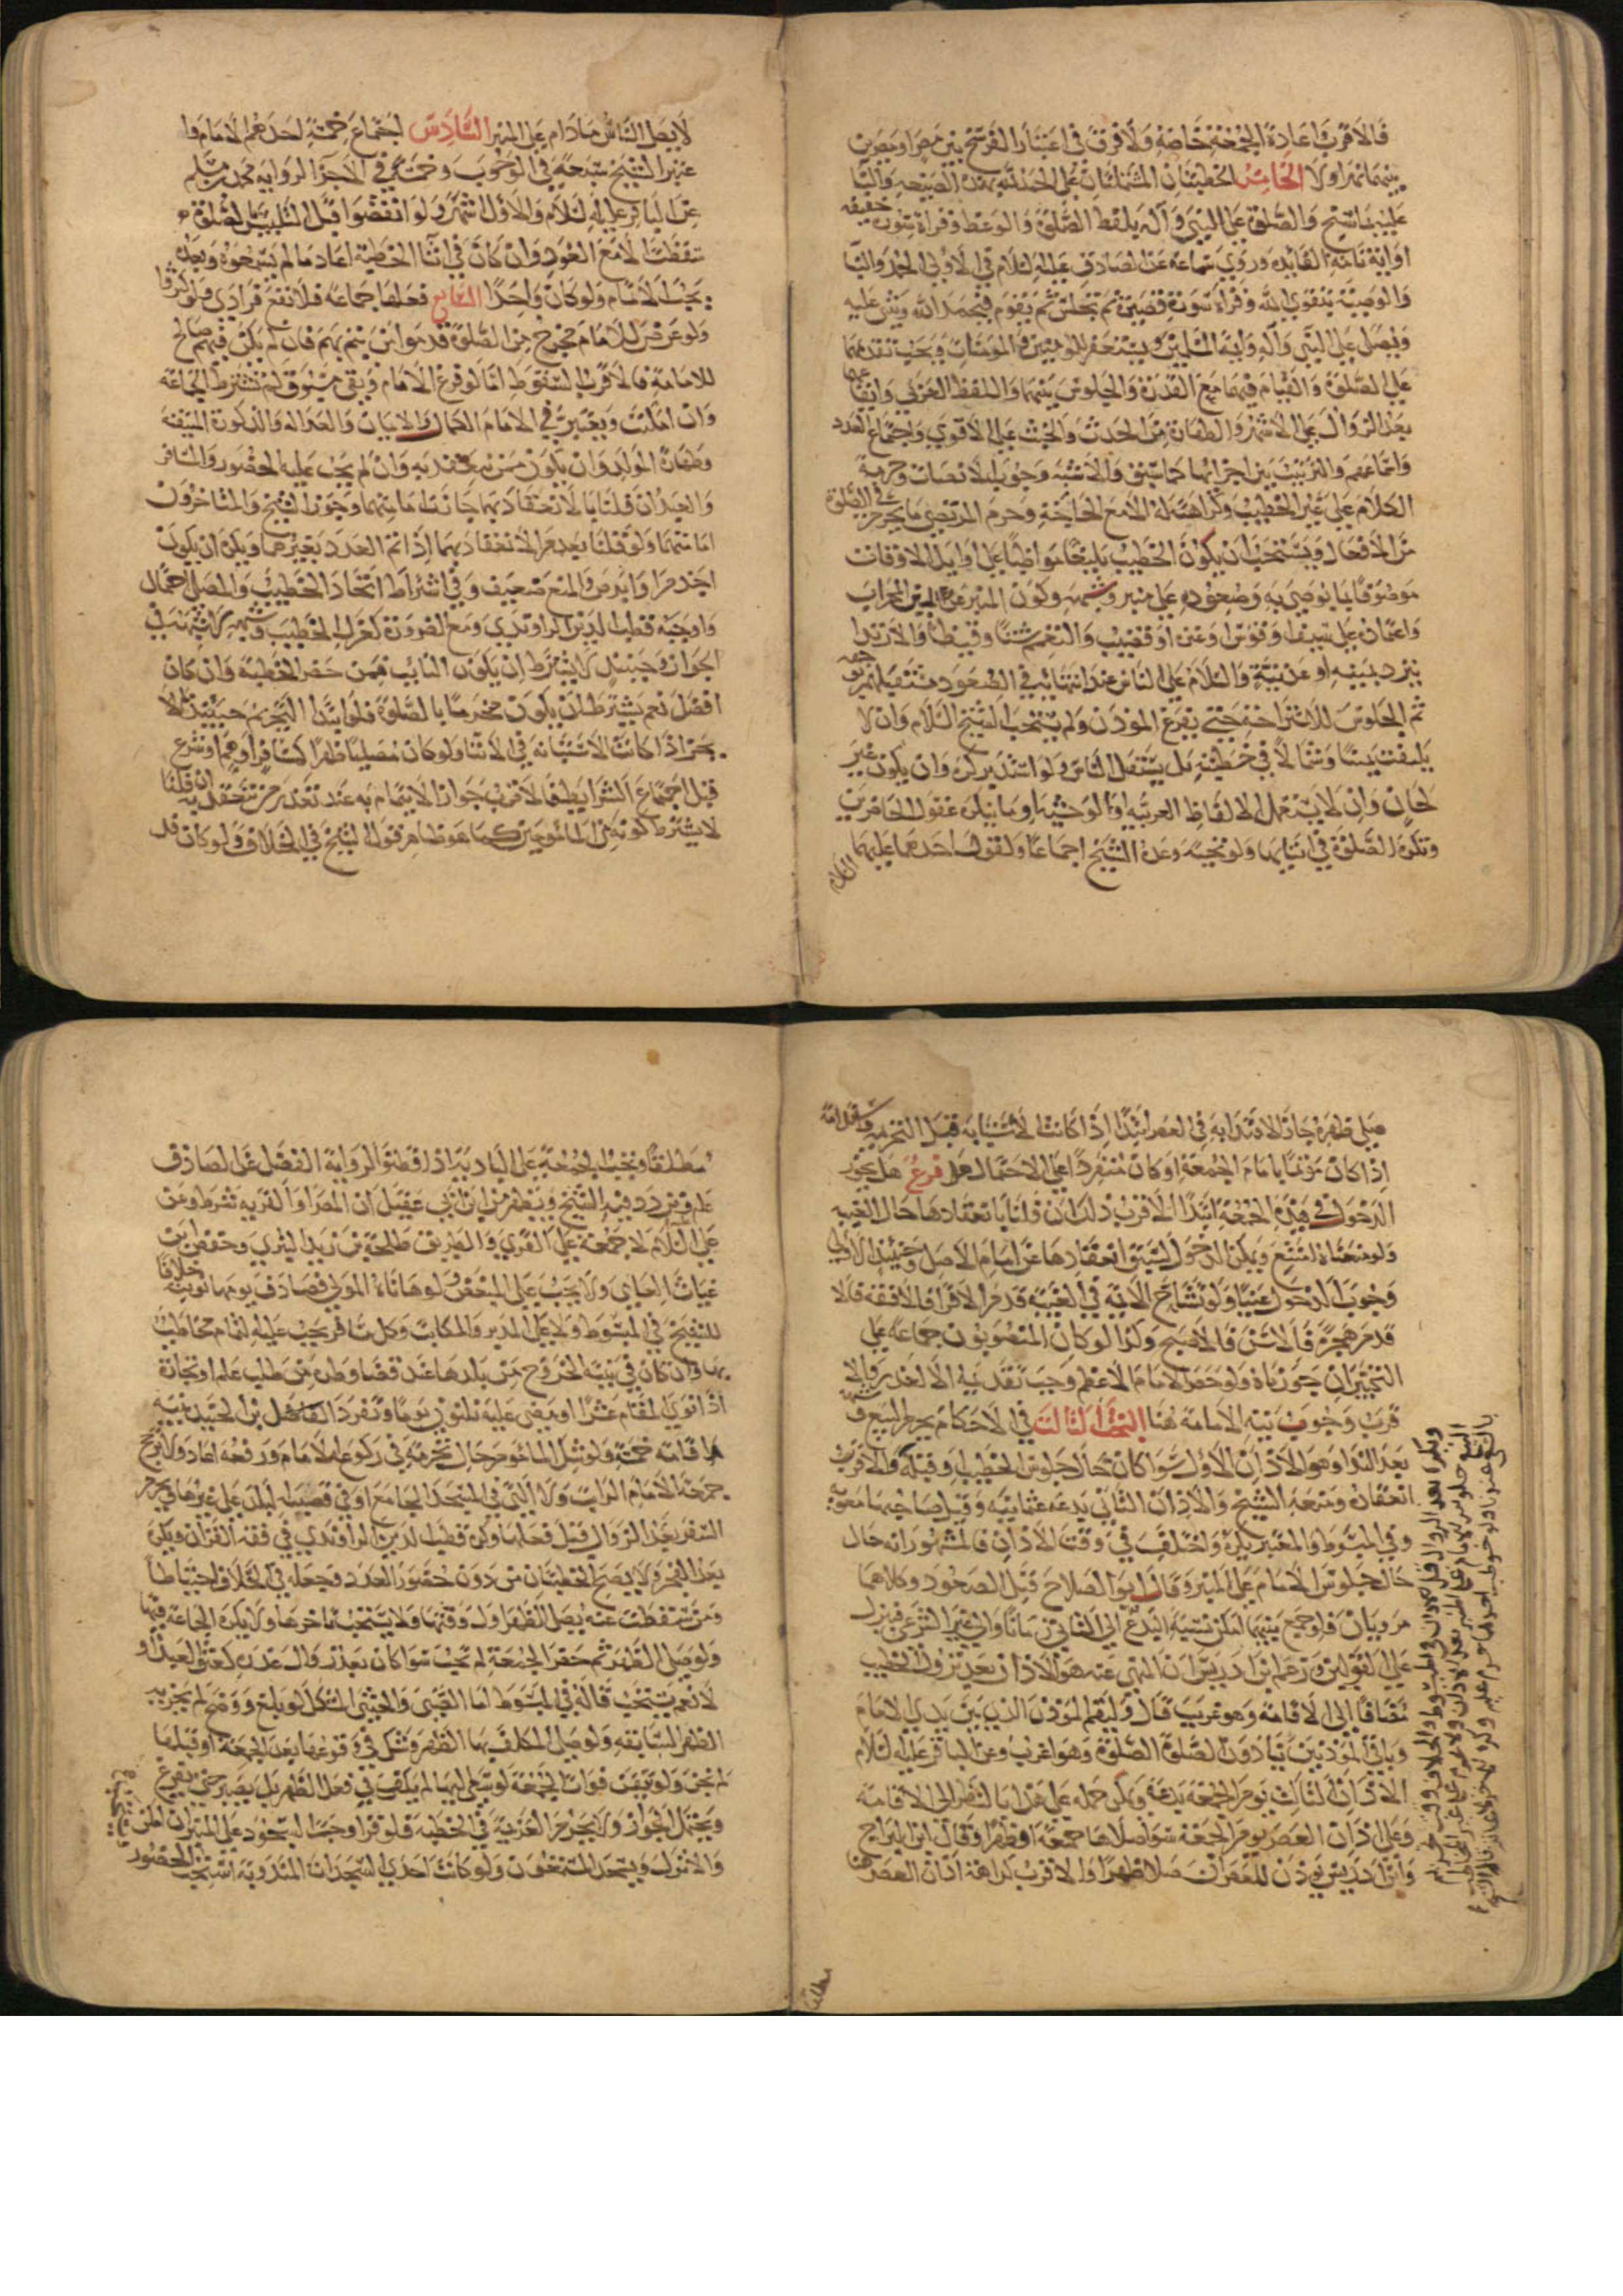 فالاقرب اعادة الجمعة خاصة ولا فرق في اعتبار الفرسخ بين مصر او مصرين
بينهما نهر او لا الخامس الخطبتان المشتملتان على الحمد لله بهذه الصيغة والثنا
عليه بما سنح والصلوة على النبي وآله بلفظ الصلوة والوعظ وقراة سورة خفيفة
او اية تامة الفائدة وروى سماعة عن الصادق عليه السلام في الاولى الحمد والثنا
والوصية بتقوى الله وقراة سورة قصيرة ثم يجلس ثم يقوم فيحمد الله ويثني عليه
ويصلي على النبي وآله وايمة المسلمين ويستغفر للمومنين والمومنات ويجب تقدمهما
على الصلوة والقيام فيهما مع القدرة والجلوس بينهما واللفظ العربي وايقاعهما
بعد الزوال على الاشهر والطهارة من الحدث والخبث على الاقوى واجتماع العدد
واسماعهم والترتيب بين اجزائها كما سبق والاشبه وجوب الانصات وحرمة
الكلام على غير الخطيب وكراهته له الا مع الحاجة وحرم المرتضى ما يحرم في الصلوة
من الافعال ويستحب ان يكون الخطيب بليغا مواظبا على اوايل الاوقات
موصوفا بما يوصي به وصعوده على منبر وشبهه وكون المنبر عن يمين المحراب
واعتماده على سيف او قوس او عنزة او قضيب والتعمم شتا وقيظا والارتدا
ببرد يمنية او عدنية والسلام على الناس عند انتهائه في الصعود مستقبلهم بوجهه
ثم الجلوس للاستراحة حتى يفرغ الموذن ولم يستحب الشيخ السلام وان لا
يلتفت يمينا وشمالا في خطبته بل يستقبل الناس ولو استدبر كره وان يكون غير
لحان وان لا يستعمل الالفاظ العربية الوحشية وما ينكره عقول الحاضرين
وتكره الصلوة في اثنائها ولو تحية وعده الشيخ اجماعا ولقول احدهما عليهما السلام
لا يصل الناس ما دام على المنبر السادس اجتماع خمسة احدهم الامام وا
عتبر الشيخ سبعة في الوجوب وخمسة في الاجزا لرواية محمد بن مسلم
عن الباقر عليه السلام والاول اشهر ولو انفضوا قبل التلبس بالصلوة
سقطت لا مع العود وان كان في اثنا الخطبة اعاد ما لم يسمعوه وبعده
يجب الاتمام ولو كان واحدا السابع فعلها جماعة فلا تقع فرادى ولو كثروا
ولو عرض للامام مخرج من الصلوة قدموا من يتم بهم فان لم يكن فيهم صالح
للامامة فالاقرب السقوط اما لو فرغ الامام وبقي مسبوق لم تشترط الجماعة
وان امكنت ويعتبر في الامام الكمال والايمان والعدالة والذكورة المتيقنة
وطهارة المولد وان يكون ممن يعتد به وان لم يجب عليه الحضور والمسافر
والعبد ان قلنا بالانعقاد بهما جازت امامتهما وجوز الشيخ والمتاخرون
امامتهما ولو قلنا بعدم الانعقاد بهما اذا تم العدد بغيرهما ويكره ان يكون
اجذم او ابرص والمنع ضعيف وفي اشتراط اتحاد الخطيب والمصلي احتمال
واوجبه قطب الدين الراوندي ومع الضرورة كعزل الخطيب وشبهه لا شبهة في
الجواز وحينئذ لا يشترط ان يكون النايب ممن حضر الخطبة وان كان
افضل نعم يشترط ان يكون محرما بالصلوة فلو ابتدا التحريم حينئذ لم
يجز اذا كانت الاستنابة في الاثنا ولو كان مصليا ظهرا كمسافر او اعمى او شرع
قبل اجتماع الشرايط فالاقرب جواز الايتمام به عند تعذر من تنعقد به ان قلنا
لا يشترط كونه من المامومين كما هو ظاهر قول الشيخ في الخلاف ولو كان قد
صلى ظهره جاز الاقتدا به في العصر ابتدا اذا كانت الاستنابة قبل التحريم
اذا كان موتما بامام الجمعة او كان منفردا على الاحتمال فرع هل يجوز
الدخول في هذه الجمعة ابتدا الاقرب ذلك ان قلنا بانعقادها حال الغيبة
ولو منعناه امتنع ويمكن الدخول لسبق انعقادها عن امام الاصل وحينئذ الاولى
وجوب الدخول عينا ولو تشاح الايمة في الغيبة قدم الاقرا فالافقه فالا
قدم هجرة فالاسن فالاصبح وكذا لو كان المنصوبون جماعة على
التخيير ان جوزناه ولو حضر الامام الاعظم وجب تقديمه الا لعذر والا
قرب وجوب نية الامامة هنا البحث الثالث في الاحكام يحرم البيع وشبهه
بعد الندا وهو الاذان الاول سوا كان حال جلوس الخطيب او قبله والاقرب
انعقاده ومنعه الشيخ والاذان الثاني بدعة عثمانية وقيل صاحبها معوية
وفي المبسوط والمعتبر يكره واختلف في وقت الاذان فالمشهور انه حال
حال جلوس الامام على المنبر وقال ابو الصلاح قبل الصعود وكلاهما
مرويان فلو جمع بينهما امكن نسبة البدع الى الثاني زمانا والى غير الشرعي فينزل
على القولين وزعم ابن ادريس ان المنهي عنه هو الاذان بعد نزول الخطيب
مضافا الى الاقامة وهو غريب قال وليقم الموذن الذي بين يدي الامام
وباقي الموذنين ينادون الصلوة الصلوة وهو اغرب وعن الباقر عليه السلام
الاذان الثالث يوم الجمعة بدعة ويمكن حمله على هذا بالنظر الى الاقامة
وعلى اذان العصر يوم الجمعة سوا صلاها جمعة او ظهرا وقال ابن البراج
وابن ادريس يوذن للعصر ان صلا ظهرا والاقرب كراهة اذان العصر هنا
مطلقا
مطلقا وتجب الجمعة على البادية اذا قطنوا لرواية الفضل عن الصادق
عليه السلام وتردد فيه الشيخ ويظهر من ابن ابي عقيل ان المصر او القرية شرط وعن
علي عليه السلام لا جمعة على القرى والطريق طلحة بن زيد البتري وحفص بن
غياث العامي ولا يجب على المبعض ولو هاياه المولى فصادف يومها نوبته خلافا
للشيخ في المبسوط ولا على المدبر والمكاتب وكل مسافر يجب عليه التمام مخاطب
بها وان كان في نيته الخروج من بلدها عند قضا وطره من طلب علم او تجارة
اذا نوى المقام عشرا او مضى عليه ثلثون يوما وتفرد الفاضل بن الجنيد بنية
اقامة خمسة ولو شك الماموم حال تحريمه في ركوع الامام ورفعه اعاد ولا يرجح
جمعة الامام الراتب ولا التي في المسجد الجامع او في قصبة البلد على غيرها ويحرم
السفر بعد الزوال قبل فعلها وكره قطب الدين الراوندي في فقه القران ويكره
بعد الفجر ولا يصح الخطبتان من دون حضور العدد وجعله في الخلاف احتياطا
ومن سقطت عنه يصلي الظهر اول وقتها ولا يستحب تاخرها ولا يكره الجماعة فيها
ولو صلى الظهر ثم حضر الجمعة لم تجب سوا كان بعد زوال عذره كعتق العبد او
لا نعم يستحب قاله في المبسوط اما الصبي والخنثى المشكل لو بلغ ووضح لم يجزيه
الظهر السابقة ولو صلى المكلف بها الظهر وشك في وقوعها بعد الجمعة او قبلها
لم تجز ولو تيقن فوات الجمعة لو سعى اليها لم يكف في فعل الظهر بل يصبر حتى يفرغ
ويحتمل الجواز ولا يحرم العزيمة في الخطبة فلو قرا وجب السجود على المنبر ان امكن
والا نزل ويسجد المستمعون ولو كانت احدى السجدات المندوبة استحب